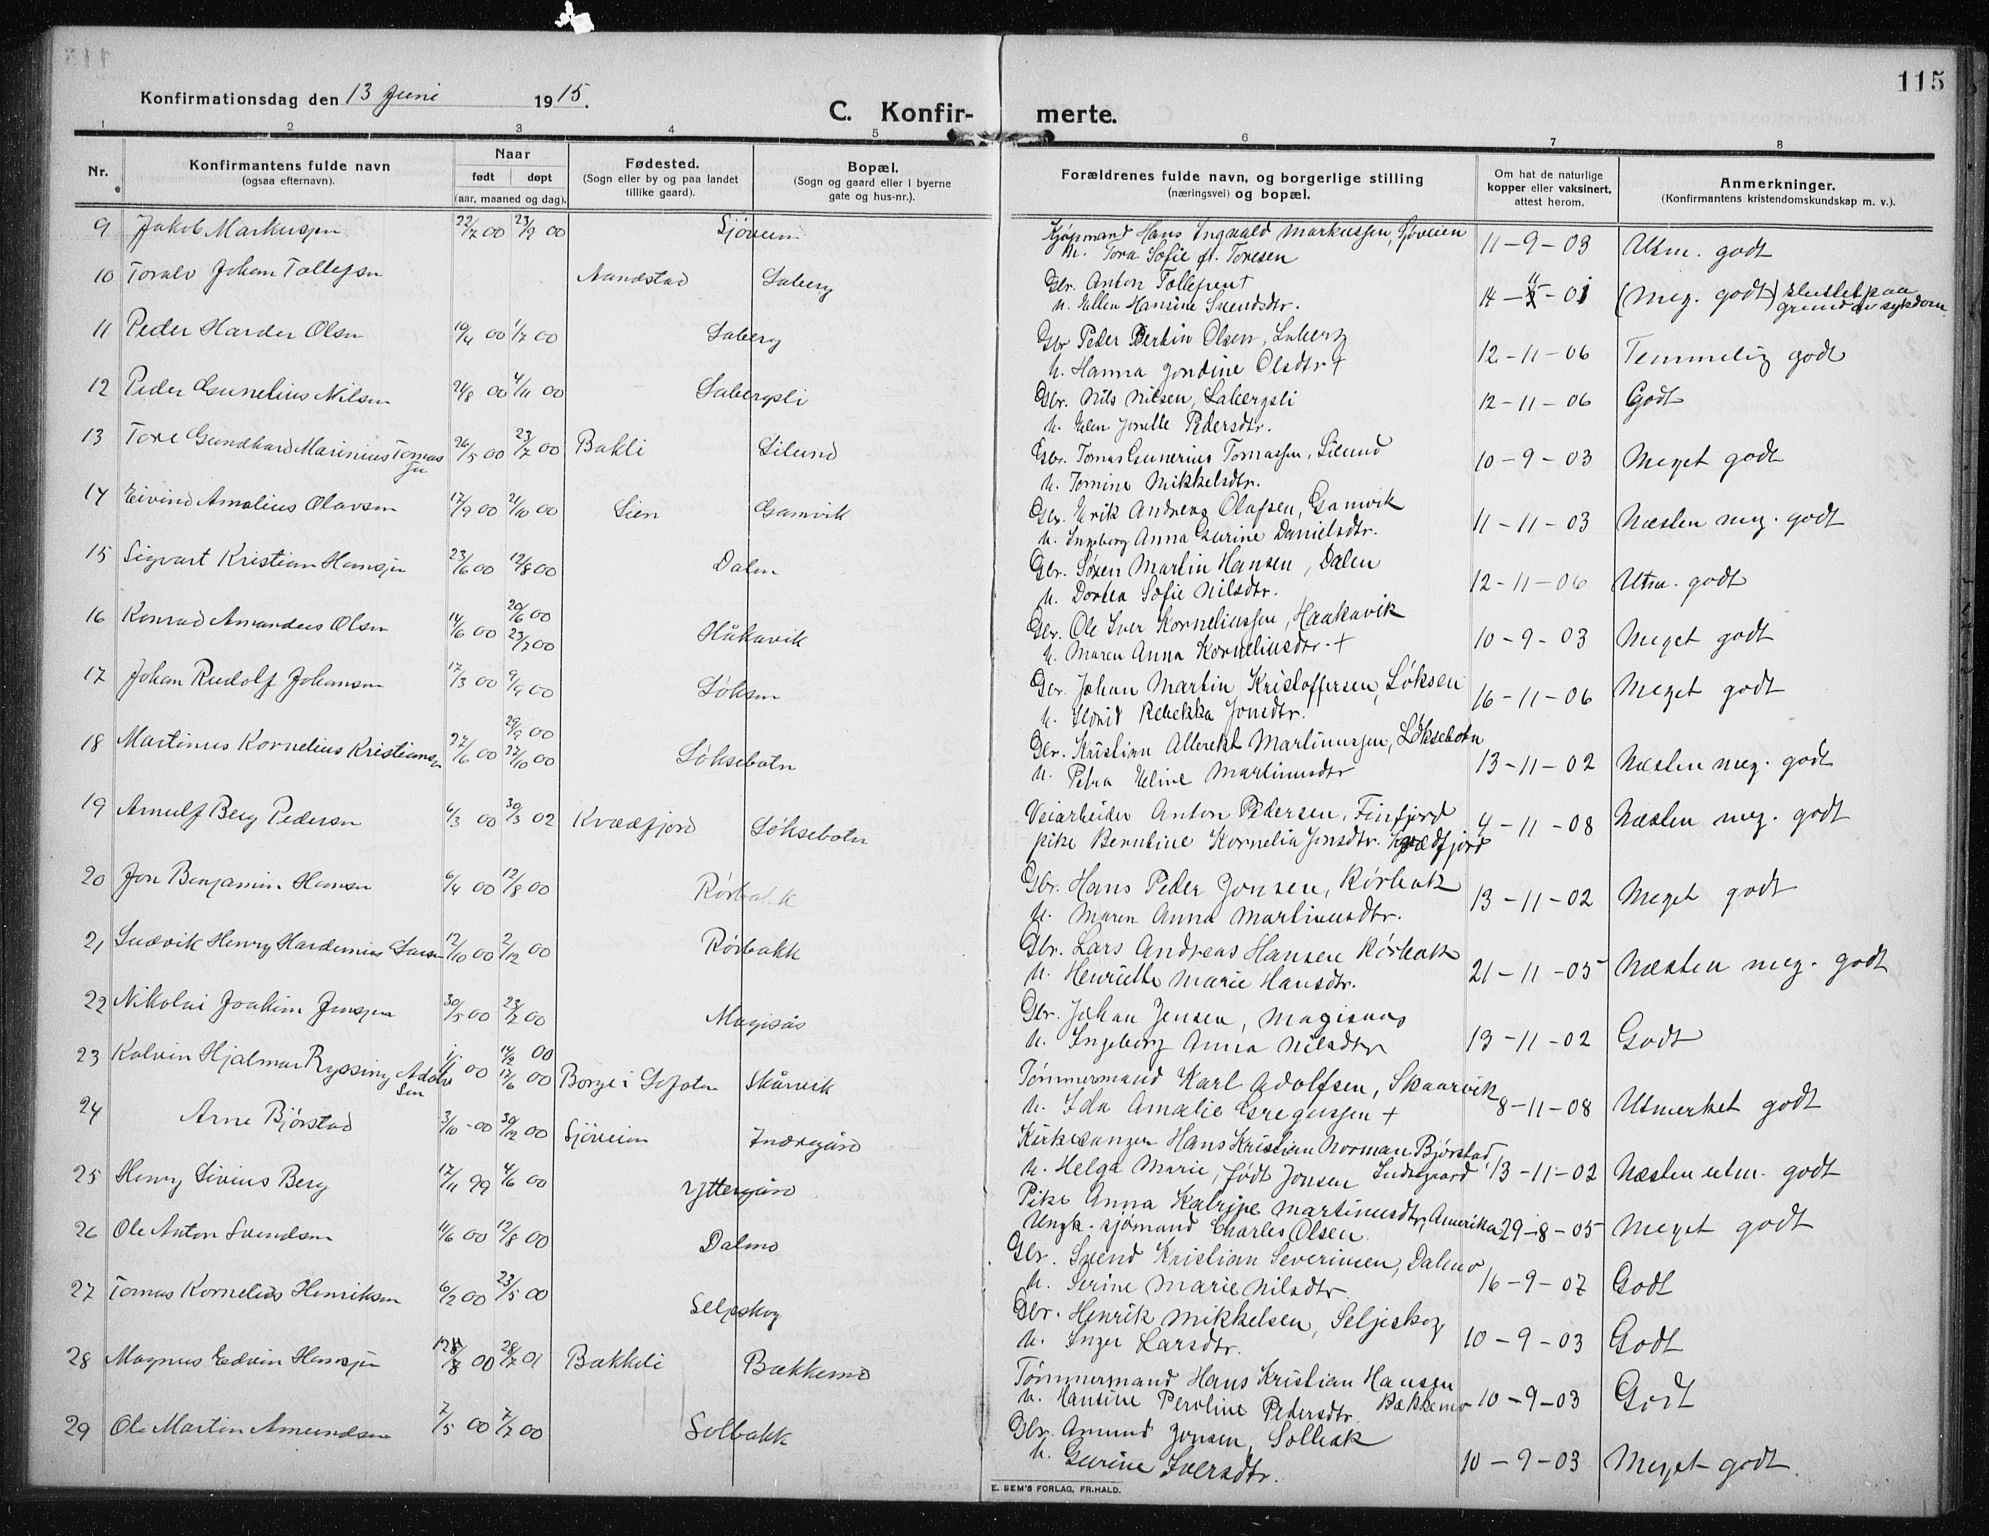 115
Konfirmationsdag den 13 Juni 1915.
C. Konfir- merte.
1 2 3 4 5 6 7 8
Nr.
Konfirmantens fulde navn
(ogsaa efternavn).
Naar
født døpt
(aar, maaned og dag).
Fødested.
(Sogn eller by og paa landet
tillike gaard).
Bopæl.
(Sogn og gaard eller i byerne
gate og hus-nr.).
Forældrenes fulde navn, og borgerlige stilling
(næringsvei) og bopæl.
Om hat de naturlige
kopper eller vaksinert,
attest herom.
Anmerkninger.
(Konfirmantens kristendomskundskap m. v.).
9 Jakob Markussen 22/7 00 23/9 00 Sjøveien Kjøpmand Hans Ingvald Markussen, Sjøveien 11-9-03 Utm. godt
h. Tora Sofie f. Toresen
10 Toralv Johan Tollefsen Aandstad Saberg Gbr. Anton Tollefsen †
h. Ellen Hansine Svendsdtr. 14- -01 (Meg. godt) sluttet paa
grund av sykdom
11 Peder Harder Olsen 19/4 00 1/7 00 Saberg Gbr Peder Bertin Olsen, Saberg
h. Hanna Jondine Olsdtr + 12-11-06 Temmelig godt
12 Peder Gunelius Nilsen 24/8 00 4/11 00 Sabergsli Gbr. Nils Nilsen, Sabergsli 12-11-06 Godt
h. Elen Jonille Pedersdtr.
13 Tore Gundhard Marinius Tomas
sen 26/5 00 23/7 00 Bakli Silund Gbr. Tomas Gunerius Tomassen, Silund
h. Tomine Mikkelsdtr. 10-9-03 Meget godt
14 Eivind Amalius Olavsen 17/9 00 21/10 00 Lien Gamvik Gbr. Erik Andreas Olafsen, Gamvik
h. Ingeborg Anna Gurine Danielsdtr. 11-11-03 Næsten meg. godt
15 Sigvart Kristian Hansen 23/6 00 12/8 00 Dalen Gbr. Søren Martin Hansen, Dalen
h. Dortea Sofie Nilsdtr. 12-11-06 Utm. godt
16 Konrad Amandus Olsen 14/6 00 20/6 00
23/7 00 Håkavik Gbr. Ole Iver Korneliussen, Haakavik
h. Maren Anna Korneliusdtr. + 10-9-03 Meget godt
17 Johan Rudolf Johansen 17/3 00 9/9 00 Løksen Gbr. Johan Martin Kristoffersen, Løksen
h. Rebekka Jonsdtr. 16-11-06 Meget godt
18 Martinus Kornelius Kristiansen 27/6 00 29/9 00
22/10 00 Løksebotn Gbr. Kristian Albrekt Martinussen, Løksebotn
h. Petra Eline Martinusdtr 13-11-02 Næsten meg. godt
19 Arnulf Berg Pedersen 6/3 00 30/3 02 Kvædfjord Løksebotn Veiarbeider Anton Pedersen, Finfjord
pike Berntine Kornelia Jonsdtr. Kvædfjord 4-11-08 Næsten meg. godt
20 Jon Benjamin Hansen 6/4 00 12/8 00 Rørbakk Gbr. Hans Peder Jonsen, Rørbak
h. Maren Anna Martinusdtr. 13-11-02 Meget godt
21 Ludvik Henry Hardenius Larsen 12/10 00 2/12 00 Rørbakk Gbr. Lars Andreas Hansen Rørbak
h. Henriette Marie Hansdtr. 21-11-05 Næsten meg. godt
22 Nikolai Joakim Jensen 30/5 00 23/7 00 Magisås Gbr. Johan Jensen, Magisaas
h. Ingeborg Anna Nilsdtr 13-11-02 Godt
23 Kalvin Hjalmar Ryssing Adolv
sen 1/1 00 14/2 00
17/6 00 Borge i Lofoten Skårvik Tømmermand Karl Adolfsen, Skaarvik
h. Ida Amalie Gregussen + 8-11-08 Utmerket godt
24 Arne Bjørstad 3/10-00 30/12 00 Sjøveien Indregård Kirkesanger Hans Kristian Norman Bjørstad,
h. Helga Marie, født Jonsen Indregaard 13-11-02 Næsten utm. godt
25 Henry Livius Berg 17/11 99 4/6 00 Yttergård Pike Anna Katrine Martinusdtr, Amerika
Ungk. sjømand Charles Olsen. 29-8-05 Meget godt
26 Ole Anton Svendsen 11/6 00 12/8 00 Dalmo Gbr. Svend Kristian Severinsen, Dalmo
h. Serine Marie Nilsdtr. 16-9-07 Godt
27 Tomas Kornelius Henriksen 6/2 00 23/5 00 Seljeskog Gbr. Henrik Mikkelsen, Seljeskog
h. Inger Larsdtr. 10-9-03 Godt
28 Magnus Edvin Hansen /8 00 28/7 01 Bakkeli Bakkemo Tømmermand Hans Kristian Hansen
h. Hansine Peroline Pedersdtr. Bakkemo 10-9-03 Godt
29 Ole Martin Amundsen 7/5 00 7/7 00 Solbakk Gbr. Amund Jonsen, Solbak
h. Gurine Iversdtr. 10-9-03 Meget godt.
E. SEM'S FORLAG, FR.HALD.